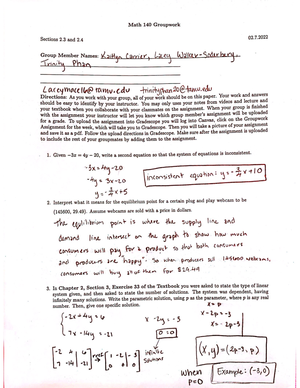 Math 140 Groupwork
Sections 2.3 and 2.4
02.7.2022
Group Member Names: Kaitlyn Carrier, Lacey Walker-Soderburg-
Trinity Phan
trinityphan20@tamu.edu
Directions: As you work with your group, all of your work should be on this paper. Your work and answers
should be easily by identify by your instructor. You may only use your notes from videos and lecture and
your textbook when you collaborate with your classmates on the assignment. When your group is finished
with the assignment your instructor will let you know which group member's assignment will be uploaded
for a grade. To upload the assignment into Gradescope you will log into Canvas, click on the Groupwork
Assignment for the week, which will take you to Gradescope. Then you will take a picture of your assignment
and save it as a pdf. Follow the upload directions in Gradescope. Make sure after the assignment is uploaded
to include the rest of your groupmates by adding them to the assignment.
1. Given −3x = 4y − 20, write a second equation so that the system of equations is inconsistent.
-3x = 4y - 20
-4y = 3x - 20
y = -3/4 x + 5
inconsistent equation: y = -3/4 x + 10
2. Interpret what it means for the equilibrium point for a certain plug and play webcam to be
(145600, 29.49). Assume webcams are sold with a price in dollars.
The equilibrium point is where the supply line and
demand line intersect on the graph to show how much
consumers will pay for a product so that both consumers
and producers are happy. So when producers sell 145600 webcams,
consumers will buy all of them for $29.49
3. In Chapter 2, Section 3, Exercise 33 of the Textbook you were asked to state the type of linear
system given, and then asked to state the number of solutions. The system was dependent, having
infinitely many solutions. Write the parametric solution, using p as the parameter, where p is any real
number. Then, give one specific solution.
-2x + 4y = 6
7x - 14y = -21
x - 2y = -3
0 = 0
y = p
x - 2p = -3
x = 2p - 3
infinite
solutions
(x, y) = (2p-3, p)
when
p=0
Example: (-3, 0)